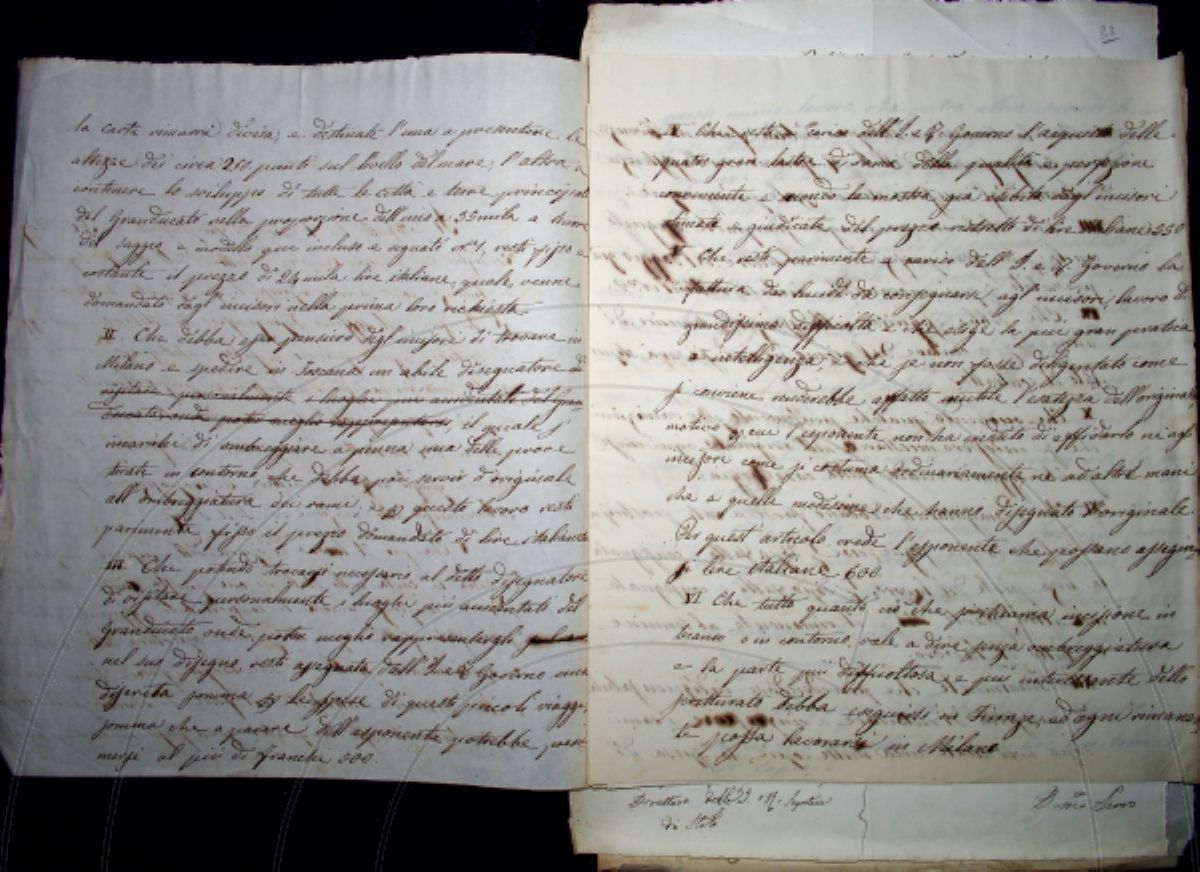 la carta rimarrà divisa, e destinate l'una a presentare le
altezze di circa 250 punti sul livello del mare, l'altra a
contenere lo sviluppo di tutte le città e terre principali
del Granducato nella proporzione dell'uno a 35 mila a tenore
del saggio e modello qui incluso e segnato n°. 1, resti fisso e
costante il prezzo di 24 mila lire italiane, quale venne
domandato dagl'incisori nella prima loro richiesta.
II. Che debba esser pensiero degl'incisori di trovare in
Milano e spedire in Toscana un abile disegnatore di
visitare personalmente i luoghi più accidentati del gran
ducato onde poter meglio rappresentarsi, il quale s'
incarichi di ombreggiare a penna una delle prove
tirate in contorno, che debba poi servir d'originale
all'ombreggiatura dei rami, e p questo lavoro resti
parimente fisso il prezzo domandato di lire italiane
III. Che potendo trovarsi necessario al detto disegnatore
di visitare personalmente i luoghi più accidentati del
Granducato onde poter meglio rappresentargli
nel suo disegno, resti assegnata dall'I. e R. Governo una
discreta somma p le spese di questi piccoli viaggi,
somma che a parere dell'esponente potrebbe
al più di franchi 600.
23
Che resti a carico dell'I. e R. Governo l'acquisto delle
quattro gran lastre di rame della qualità e perfezione
conveniente e secondo la mostra già esibita dagl'incisori
limate e giudicate del prezzo ristretto di lire italiane 1250
Che resti parimente a carico dell'I. e R. Governo la
fattura dei lucidi da consegnarsi agl'incisori, lavoro di
grandissima difficoltà e che esige la più gran pratica
e intelligenza, e che se non fosse diligentato come
si conviene renderebbe affatto inutile l'esattezza dell'originale
motivo p cui l'esponente non ha creduto di affidarlo né agl'
incisori come si costuma ordinariamente né ad altre mani
che a quelle medesime che hanno disegnato l'originale.
Per quest'articolo crede l'esponente che possano assegnar
si lire Italiane 600.
VI. Che tutto quanto ciò che si chiama incisione in
bianco o in contorno, vale a dire senza ombreggiatura
e la parte più difficoltosa e più interessante dello
debba eseguirsi in Firenze, ed ogni rimanen
te possa lavorarsi in Milano
Direttore dell'I. e R. Segreteria
di Stato